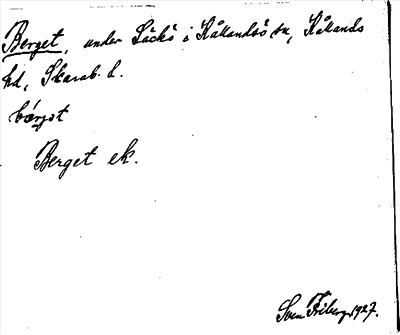 Berget, under Läckö i Kållandsö sn, Kållands
hd, Skarab. l.
bærjət
Berget ek.
Sven Friberg 1927.